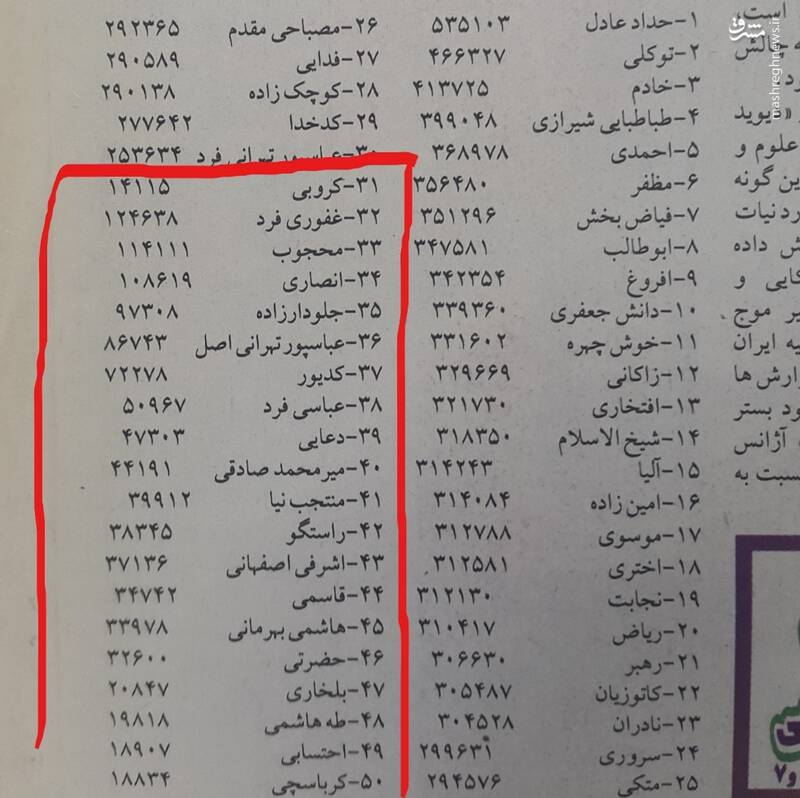 است،
ه چالش
رد.
«دیوید
علوم و
ین گونه
رد نیات
ش داده
کایی و
یر موج
یه ایران
زارش ها
ود بستر
آژانس
سبت به
۱-حداد عادل ۵۳۵۱۰۳
۲-توکلی ۴۶۶۳۲۷
۳-خادم ۴۱۳۷۲۵
۴-طباطبایی شیرازی ۳۹۹۰۴۸
۵-احمدی ۳۶۸۹۷۸
۶-مظفر ۳۵۶۴۸۰
۷-فیاض بخش ۳۵۱۲۹۶
۸-ابوطالب ۳۴۷۵۸۱
۹-افروغ ۳۴۲۳۵۴
۱۰-دانش جعفری ۳۳۹۳۶۰
۱۱-خوش چهره ۳۳۱۶۰۲
۱۲-زاکانی ۳۲۹۶۶۹
۱۳-افتخاری ۳۲۱۷۳۰
۱۴-شیخ الاسلام ۳۱۸۳۵۰
۱۵-آلیا ۳۱۴۲۴۳
۱۶-امین زاده ۳۱۴۰۸۴
۱۷-موسوی ۳۱۲۷۸۸
۱۸-اختری ۳۱۲۵۸۱
۱۹-نجابت ۳۱۲۱۳۰
۲۰-ریاض ۳۱۰۴۱۷
۲۱-رهبر ۳۰۶۶۳۰
۲۲-کاتوزیان ۳۰۵۴۸۷
۲۳-نادران ۳۰۴۵۲۸
۲۴-سروری ۲۹۹۶۳۱
۲۵-متکی ۲۹۴۵۷۶
۲۶-مصباحی مقدم ۲۹۲۳۶۵
۲۷-فدایی ۲۹۰۵۸۹
۲۸-کوچک زاده ۲۹۰۱۳۸
۲۹-کدخدا ۲۷۷۶۴۲
۳۰-عباسپور تهرانی فرد ۲۵۳۶۳۴
۳۱-کروبی ۱۴۱۱۵
۳۲-غفوری فرد ۱۲۴۶۳۸
۳۳-محجوب ۱۱۴۱۱۱
۳۴-انصاری ۱۰۸۶۱۹
۳۵-جلودارزاده ۹۷۳۰۸
۳۶-عباسپورتهرانی اصل ۸۶۷۴۳
۳۷-کدیور ۷۲۲۷۸
۳۸-عباسی فرد ۵۰۹۶۷
۳۹-دعایی ۴۷۳۰۳
۴۰-میرمحمد صادقی ۴۴۱۹۱
۴۱-منتجب نیا ۳۹۹۱۲
۴۲-راستگو ۳۸۳۴۵
۴۳-اشرفی اصفهانی ۳۷۱۳۶
۴۴-قاسمی ۳۴۷۴۲
۴۵-هاشمی بهرمانی ۳۳۹۷۸
۴۶-حضرتی ۳۲۶۰۰
۴۷-بلخاری ۲۰۸۴۷
۴۸-طه هاشمی ۱۹۸۱۸
۴۹-احتسابی ۱۸۹۰۷
۵۰-کرباسچی ۱۸۸۳۴
مشرق
mashreghnews.ir
و۷